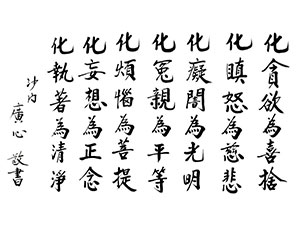 化貪欲為喜捨
化瞋怒為慈悲
化癡闇為光明
化冤親為平等
化煩惱為菩提
化妄想為正念
化執著為清淨
沙門
廣心
敬書